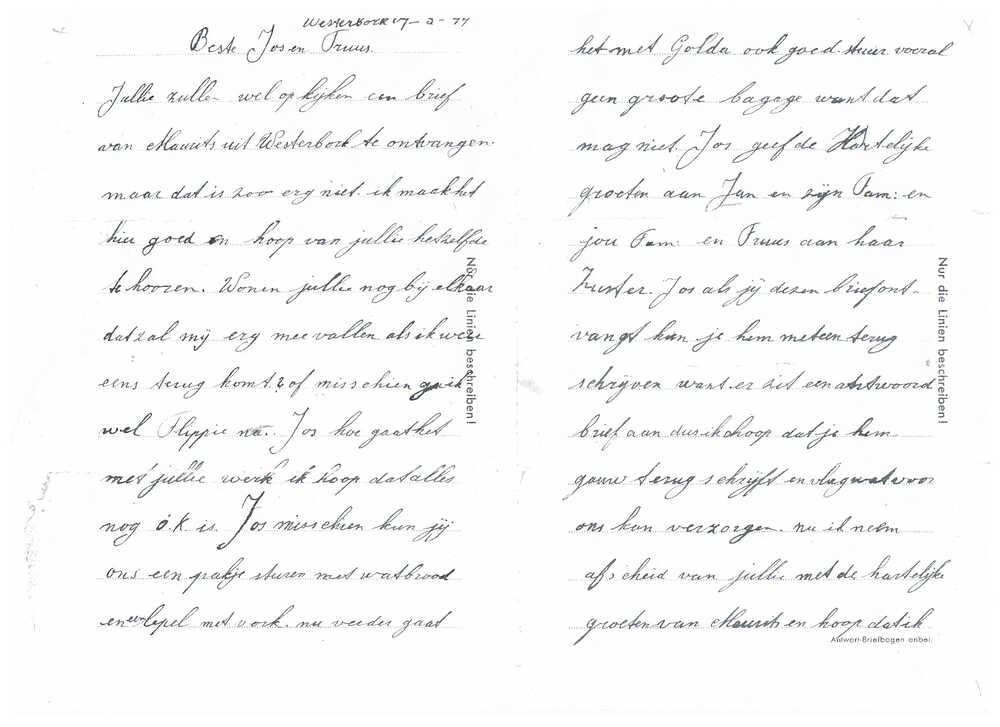 Westerbork 17-2-44
Beste Jos en Truus.
Jullie zullen wel op kijken een brief
van Maurits uit Westerbork te ontvangen.
maar dat is zoo erg niet. ik maak het
hier goed en hoop van jullie hetzelfde
te hooren. Wonen jullie nog bij elkaar
dat zal mij erg mee vallen als ik weer
eens terug komt? of misschien ga ik
wel Flippie na. Jos hoe gaat het
met jullie werk ik hoop dat alles
nog O.K. is. Jos misschien kun jij
ons een pakje sturen met wat brood
en een lepel met vork. nu verder gaat
Nur die Linien beschreiben!
het met Golda ook goed stuur vooral
geen groote bagage want dat
mag niet. Jos geef de Hartelijke
groeten aan Jan en zijn Fam: en
jou Fam: en Truus aan haar
Zuster. Jos als jij dezen brief ont-
vangt kun je hem meteen terug
schrijven want er zit een antwoord
brief aan dus ik hoop dat je hem
gauw terug schrijft en vlug wat voor
ons kan verzorgen. nu ik neem
afscheid van jullie met de hartelijke
groeten van Maurits en hoop dat ik
Nur die Linien beschreiben!
Antwort-Briefbogen anbei.